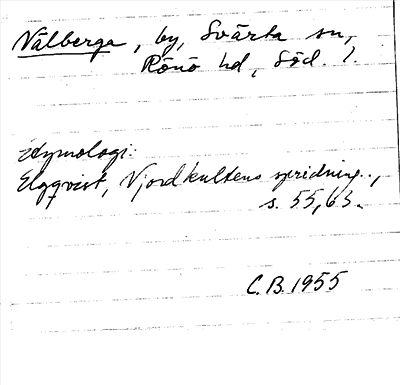 Välberga, by, Svärta sn,
Rönö hd, Söd. l.
Etymologi:
Elgqvist, Njordkultens spridning.,
s. 55, 63.
C.B. 1955